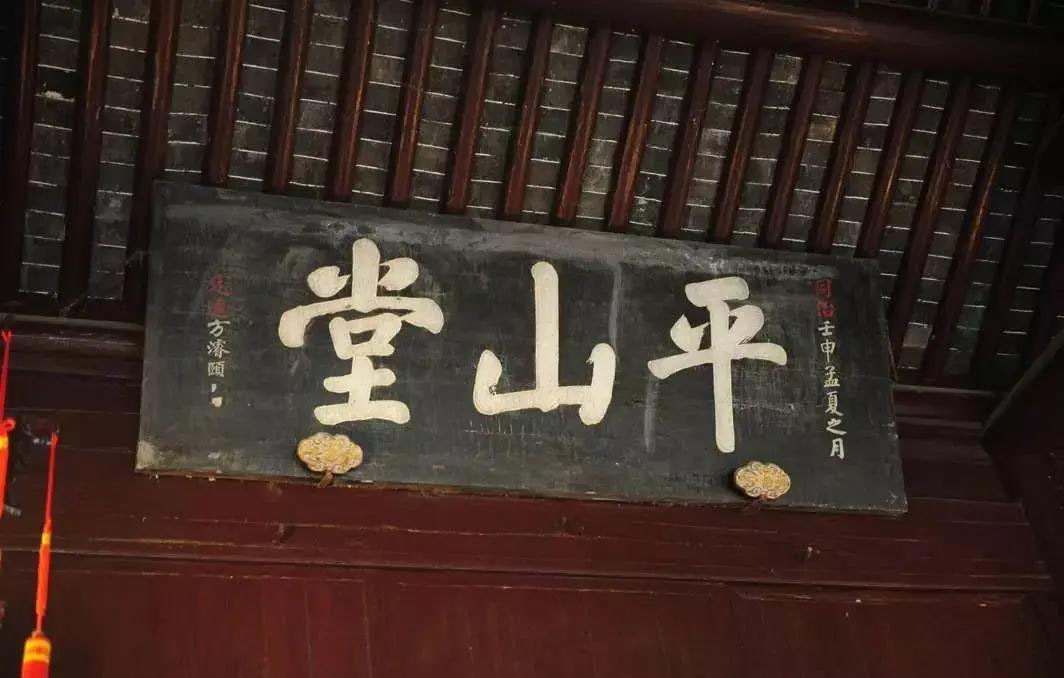 同治壬申孟夏之月
平山堂
定遠方濬頤